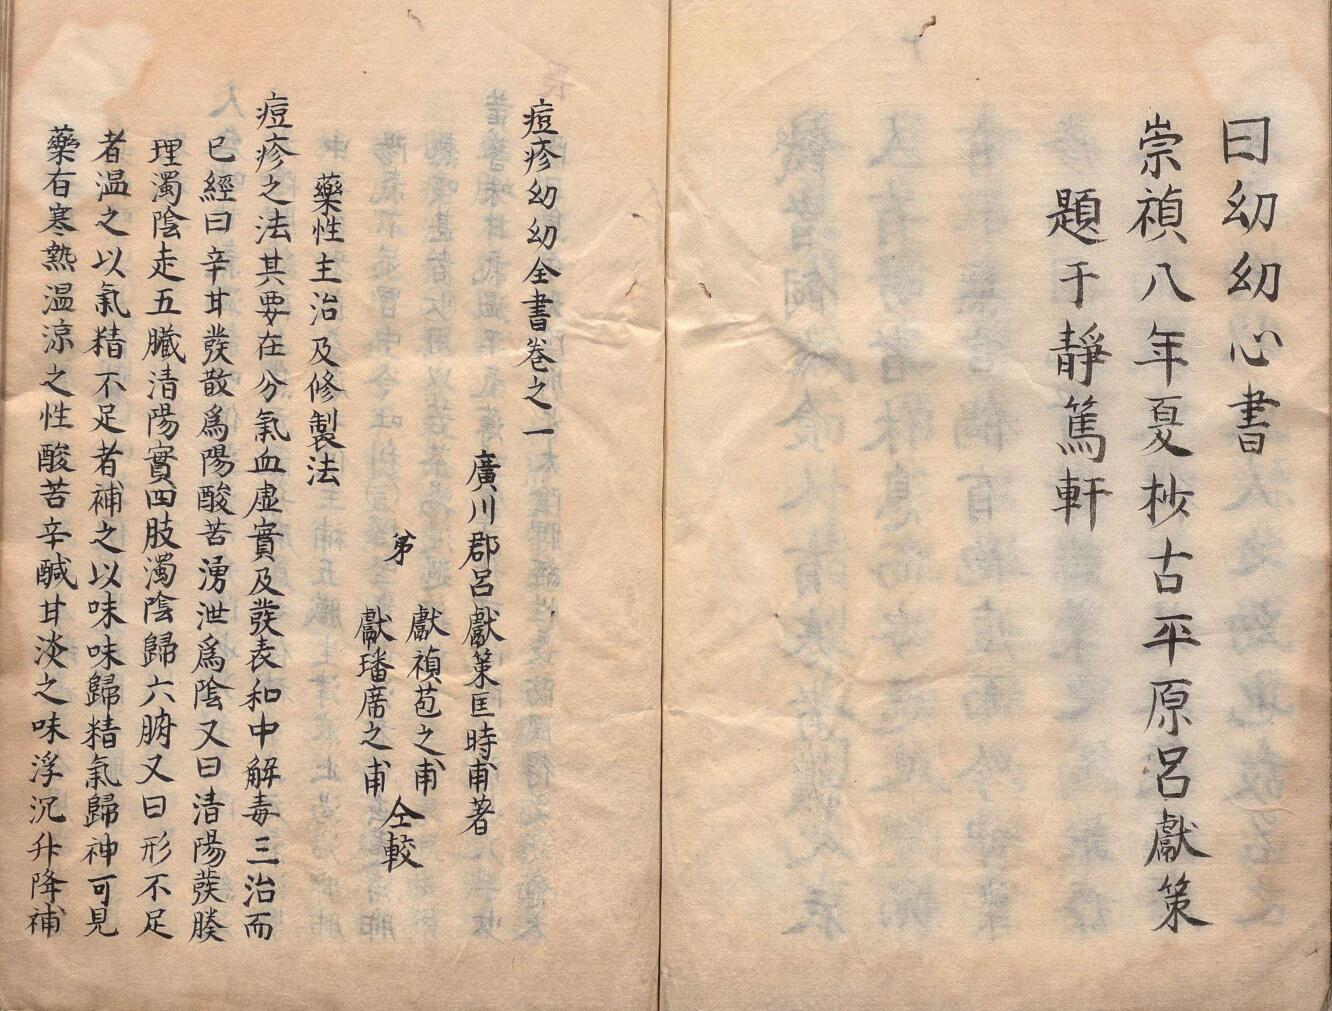 曰幼幼心書
崇禎八年夏杪古平原呂獻策
題于靜篤軒
痘疹幼幼全書卷之一
廣川郡呂獻策匡時甫著
獻禎苞之甫
弟
獻璠席之甫
仝較
藥性主治及修製法
痘疹之法其要在分氣血虛實及發表和中解毒三治而
已經曰辛甘發散爲陽酸苦湧泄爲陰又曰清陽發腠
理濁陰走五臟清陽實四肢濁陰歸六腑又曰形不足
者温之以氣精不足者補之以味味歸精氣歸神可見
藥有寒熱温涼之性酸苦辛鹹甘淡之味浮沉升降補